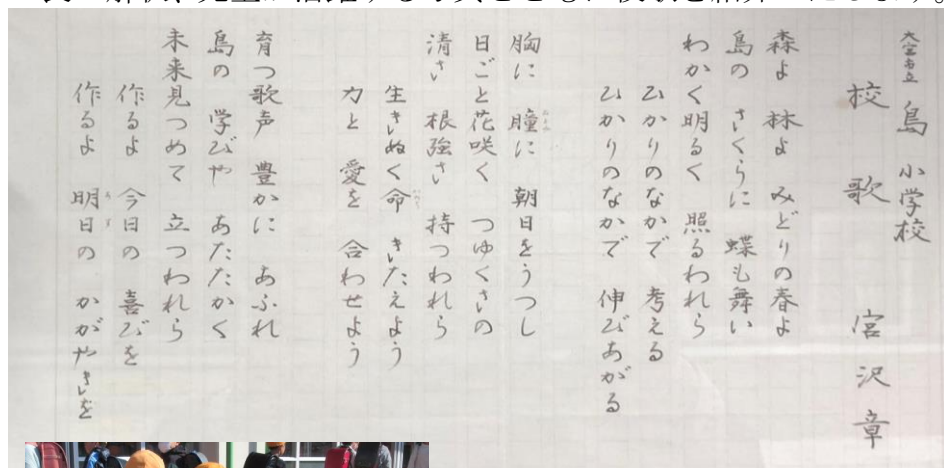 大宮市立 島小学校
校歌 宮沢章
森よ 林よ みどりの春よ
島の さくらに 蝶も舞い
わかく明るく 照るわれら
ひかりのなかで 考える
ひかりのなかで 伸びあがる
胸に 瞳に 朝日をうつし
日ごと花咲く つゆくさの
清さ 根強さ 持つわれら
生きぬく命 きたえよう
力と 愛を 合わせよう
育つ歌声 豊かに あふれ
島の 学びや あたたかく
未来見つめて 立つわれら
作るよ 今日の 喜びを
作るよ 明日の かがやきを